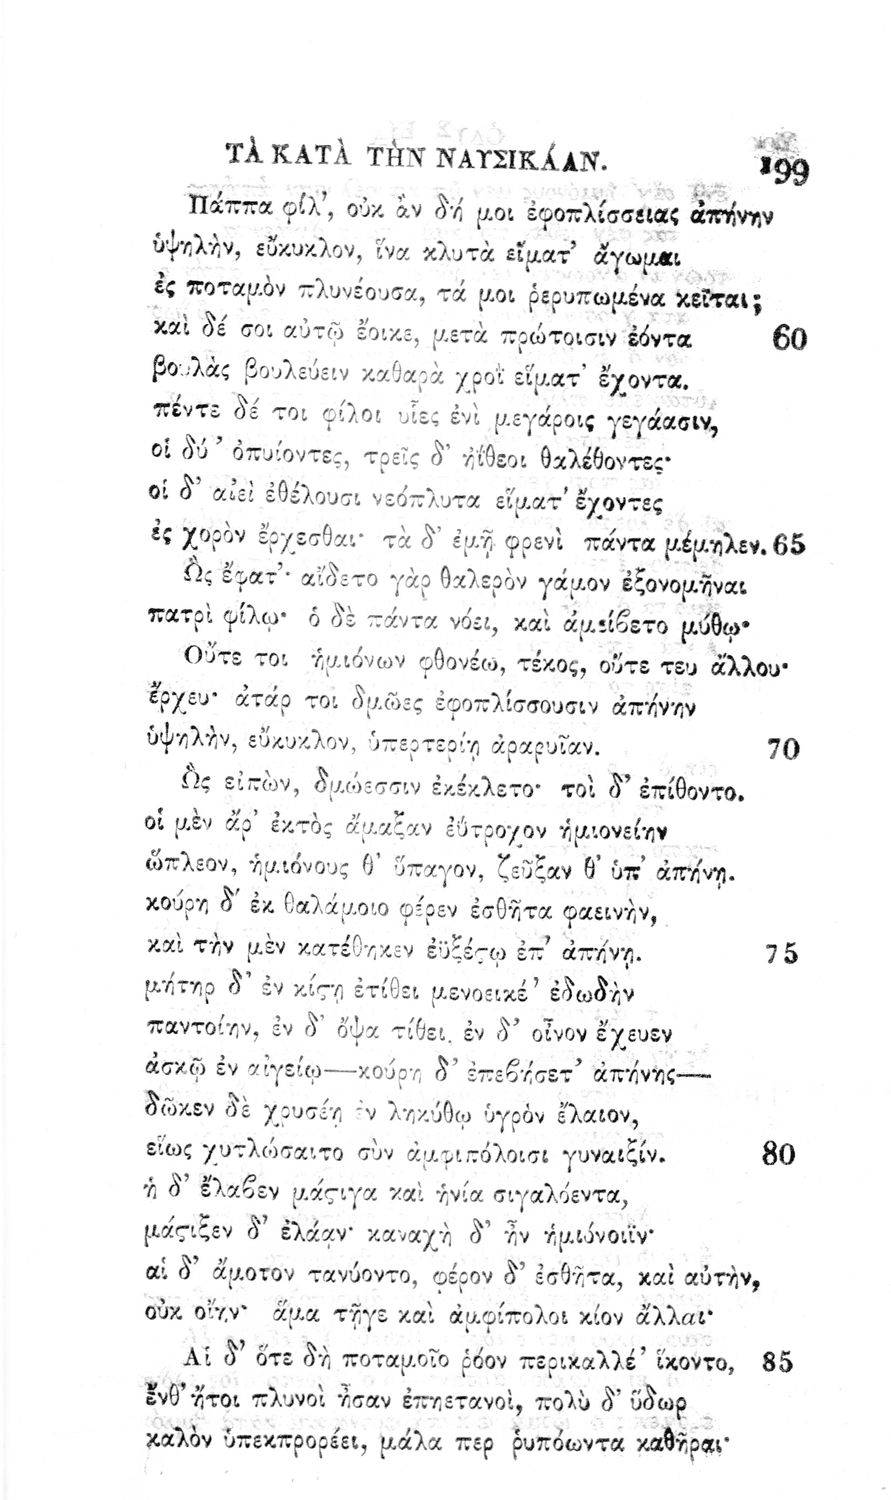 ΤᾺ ΚΑΤᾺ ΤῊΝ ΝΑΥΣΙΚΆΑΝ. 199
Πάππα φίλ', οὐκ ἂν δή μοι ἐφοπλίσσειας ἀπήνην
ὑψηλὴν, εὔκυκλον, ἵνα κλυτὰ εἵματ' ἄγωμαι
ἐς ποταμὸν πλυνέουσα, τά μοι ῥερυπωμένα κεῖται;
καὶ δέ σοι αὐτῷ ἔοικε, μετὰ πρώτοισιν ἐόντα 60
βουλὰς βουλεύειν καθαρὰ χροῒ εἵματ' ἔχοντα.
πέντε δέ τοι φίλοι υἷες ἐνὶ μεγάροις γεγάασιν,
οἱ δύ' ὀπυίοντες, τρεῖς δ' ἠΐθεοι θαλέθοντες·
οἱ δ' αἰεὶ ἐθέλουσι νεόπλυτα εἵματ' ἔχοντες
ἐς χορὸν ἔρχεσθαι· τὰ δ' ἐμῇ φρενὶ πάντα μέμηλεν. 65
Ὣς ἔφατ'· αἴδετο γὰρ θαλερὸν γάμον ἐξονομῆναι
πατρὶ φίλῳ· ὁ δὲ πάντα νόει, καὶ ἀμείϐετο μύθῳ·
Οὔτε τοι ἡμιόνων φθονέω, τέκος, οὔτε τευ ἄλλου·
ἔρχευ· ἀτάρ τοι δμῶες ἐφοπλίσσουσιν ἀπήνην
ὑψηλὴν, εὔκυκλον, ὑπερτερίῃ ἀραρυῖαν. 70
Ὣς εἰπὼν, δμώεσσιν ἐκέκλετο· τοὶ δ' ἐπίθοντο.
οἱ μὲν ἄρ' ἐκτὸς ἅμαξαν ἐΰτροχον ἡμιονείην
ὥπλεον, ἡμιόνους θ' ὕπαγον, ζεῦξαν θ' ὑπ' ἀπήνῃ.
κούρη δ' ἐκ θαλάμοιο φέρεν ἐσθῆτα φαεινὴν,
καὶ τὴν μὲν κατέθηκεν ἐϋξέϛῳ ἐπ' ἀπήνῃ. 75
μήτηρ δ' ἐν κίϛῃ ἐτίθει μενοεικέ' ἐδωδὴν
παντοίην, ἐν δ' ὄψα τίθει, ἐν δ' οἶνον ἔχευεν
ἀσκῷ ἐν αἰγείῳ—κούρη δ' ἐπεϐήσετ' ἀπήνης—
δῶκεν δὲ χρυσέῃ ἐν ληκύθῳ ὑγρὸν ἔλαιον,
εἵως χυτλώσαιτο σὺν ἀμφιπόλοισι γυναιξίν. 80
ἡ δ' ἔλαϐεν μάϛιγα καὶ ἡνία σιγαλόεντα,
μάϛιξεν δ' ἐλάαν· καναχὴ δ' ἦν ἡμιόνοιϊν·
αἱ δ' ἄμοτον τανύοντο, φέρον δ' ἐσθῆτα, καὶ αὐτὴν,
οὐκ οἴην· ἅμα τῇγε καὶ ἀμφίπολοι κίον ἄλλαι·
Αἱ δ' ὅτε δὴ ποταμοῖο ῥόον περικαλλέ' ἵκοντο, 85
ἔνθ' ἤτοι πλυνοὶ ἦσαν ἐπηετανοὶ, πολὺ δ' ὕδωρ
καλὸν ὑπεκπρορέει, μάλα περ ῥυπόωντα καθῆραι·